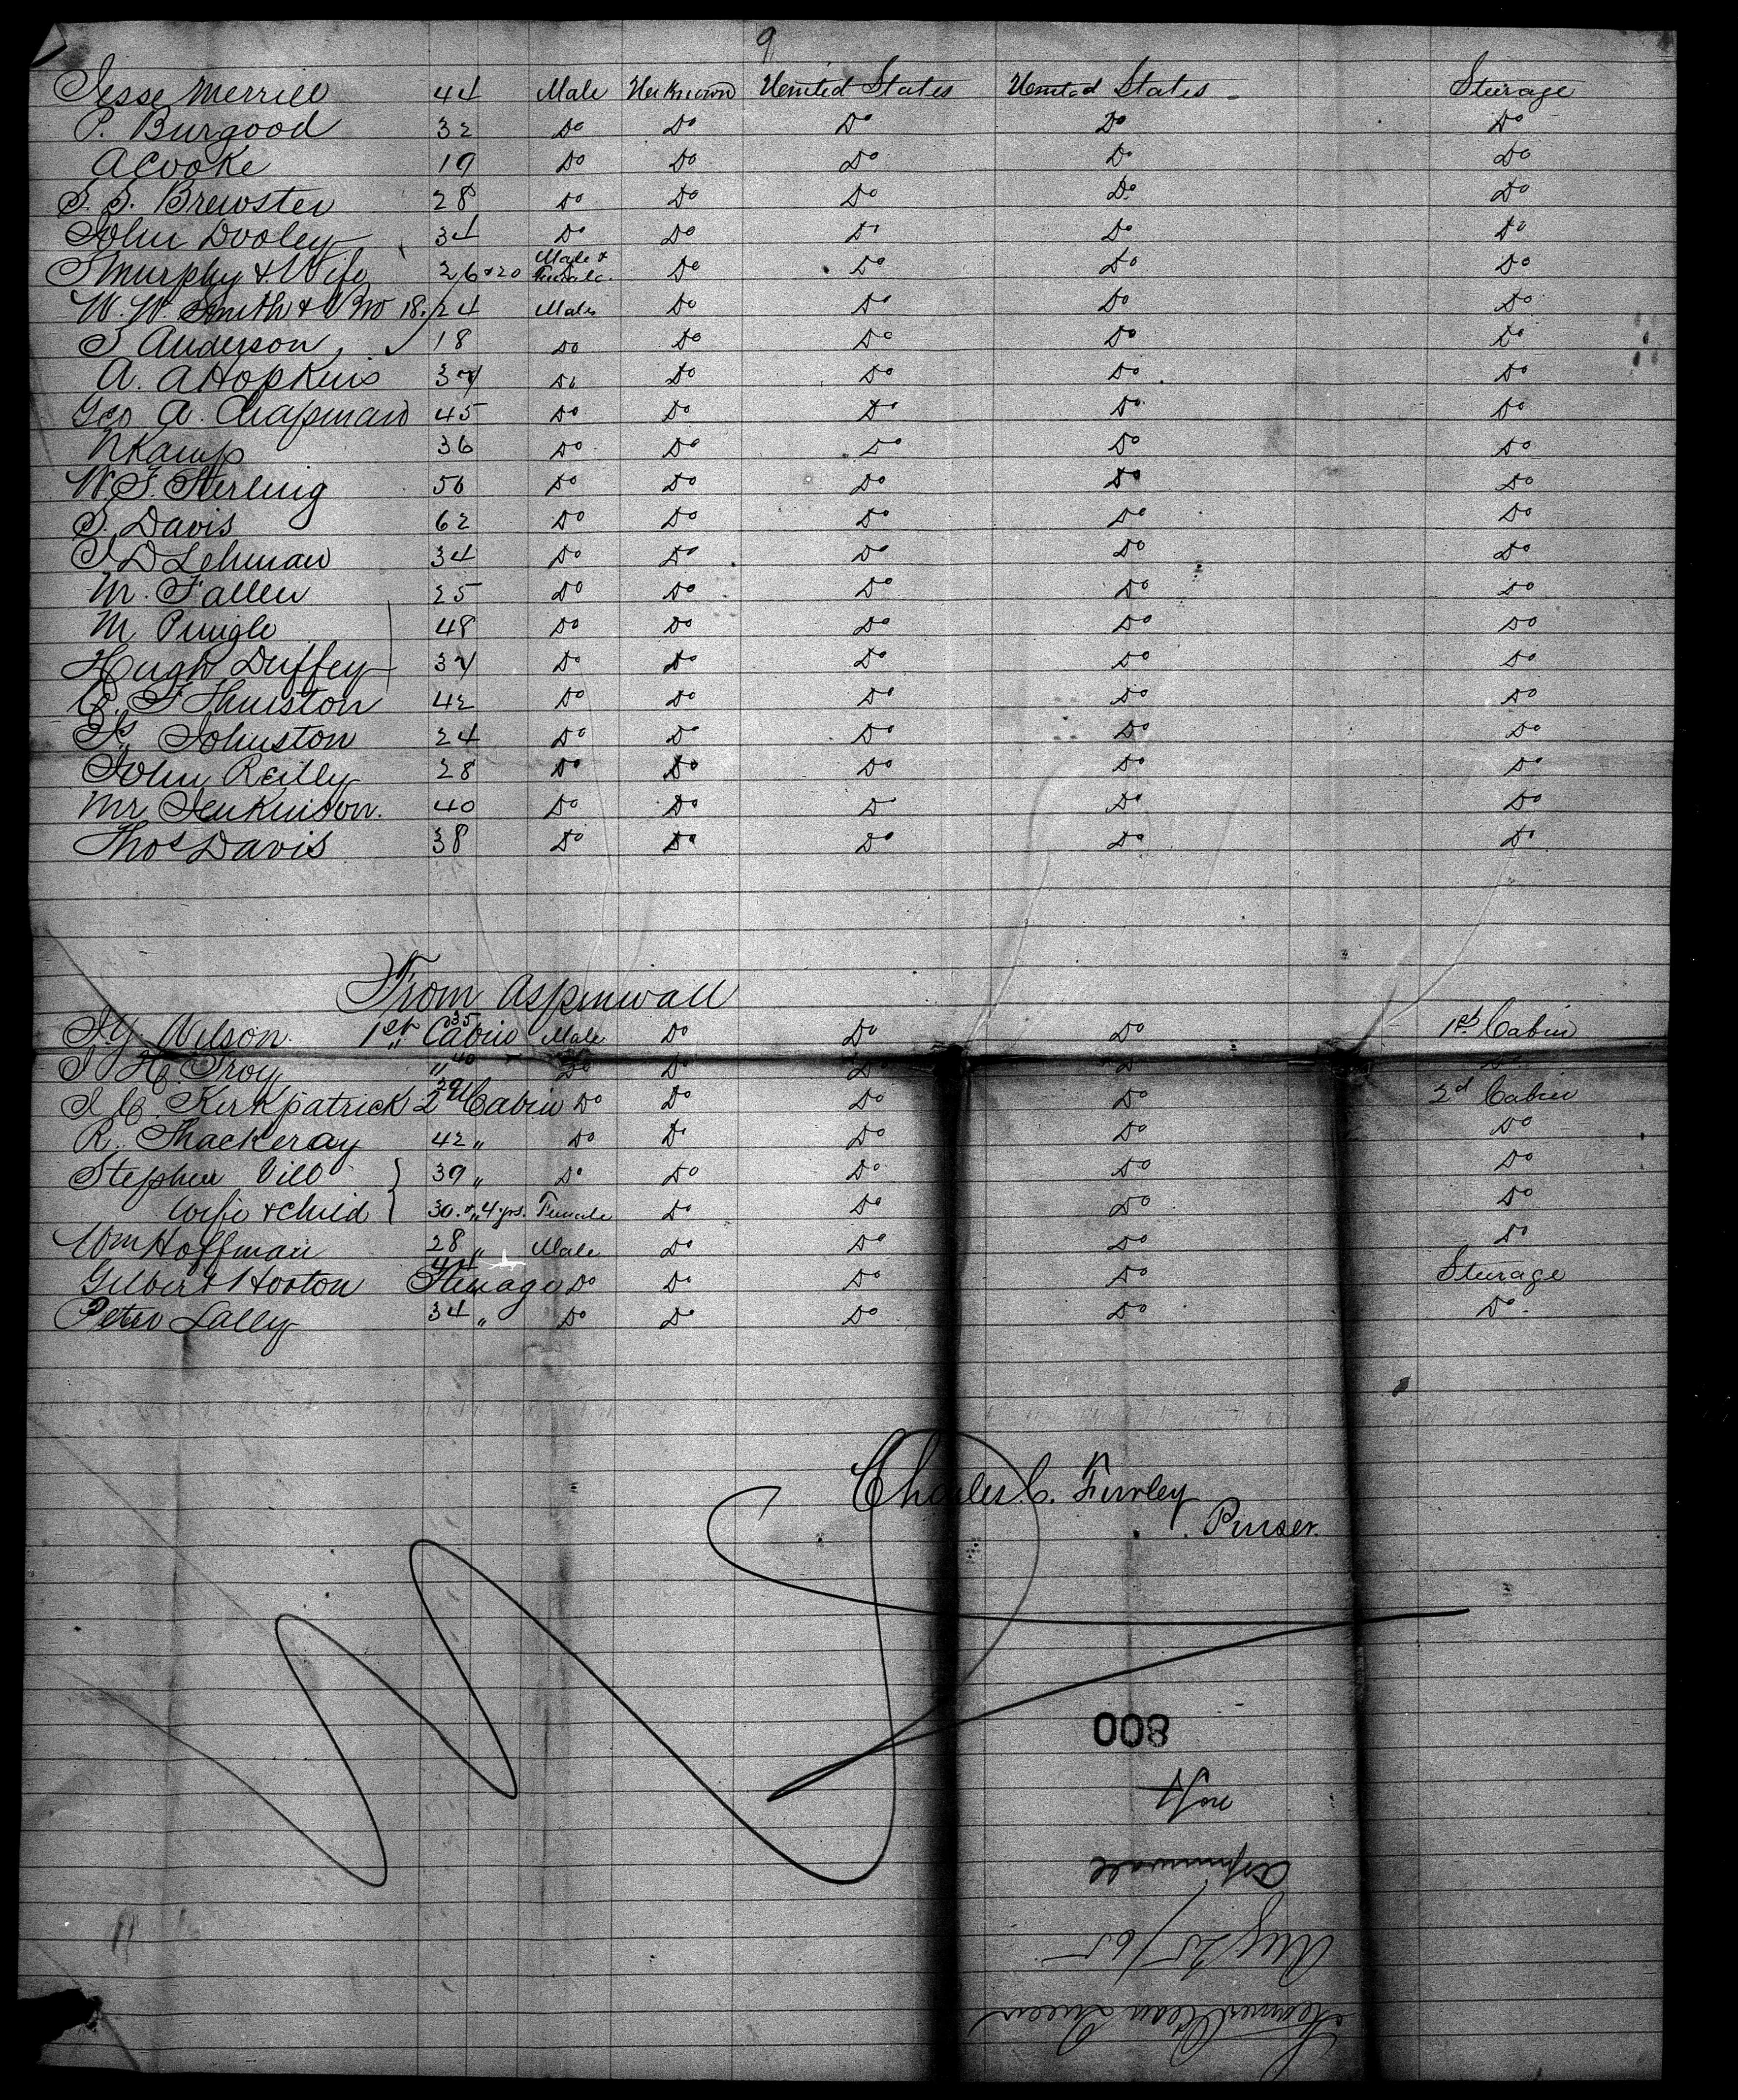 9
Jesse Merrill 44 Male Unknown United States United States Steerage
P. Burgood 32 Do Do Do Do Do
A Cooke 19 Do Do Do Do Do
S. S. Brewster 28 Do Do Do Do Do
John Dooley 34 Do Do Do Do Do
Murphy & Wife 26 & 20 Male & Female Do Do Do Do
W. W. Smith & Bro 18/24 Male Do Do Do Do
S Anderson 18 Do Do Do Do Do
A. A Hopkins 37 Do Do Do Do Do
Geo A. Chapman 45 Do Do Do Do Do
N Kamp 36 Do Do Do Do Do
W. F. Sterling 56 Do Do Do Do Do
S. Davis 62 Do Do Do Do Do
J D Lehman 34 Do Do Do Do Do
M. Fallen 25 Do Do Do Do Do
M Pringle 48 Do Do Do Do Do
Hugh Duffey 37 Do Do Do Do Do
C. F Thurston 42 Do Do Do Do Do
Js Johnston 24 Do Do Do Do Do
John Reilly 28 Do Do Do Do Do
Mr Jenkinson. 40 Do Do Do Do Do
Thos Davis 38 Do Do Do Do Do
From Aspinwall
J. Y. Wilson. 1st Cabin 35 Male Do Do Do 1st Cabin
J H. Troy " 40 Do Do Do Do Do
J C. Kirkpatrick 2d Cabin 29 Do Do Do Do 2d Cabin
R. Thackeray 42 " Do Do Do Do Do
Stephen Vill 39 " Do Do Do Do Do
Wife & Child 30. & 4 yrs. " Female Do Do Do Do
Wm Hoffman 28 " Male Do Do Do Do
Gilbert Horton Steerage 44 Do Do Do Do Steerage
Peter Lally 34 " Do Do Do Do Do.
Charles C. Furley
Purser.
800
Aspinwall
Aug 25/65
Steamer Ocean Queen